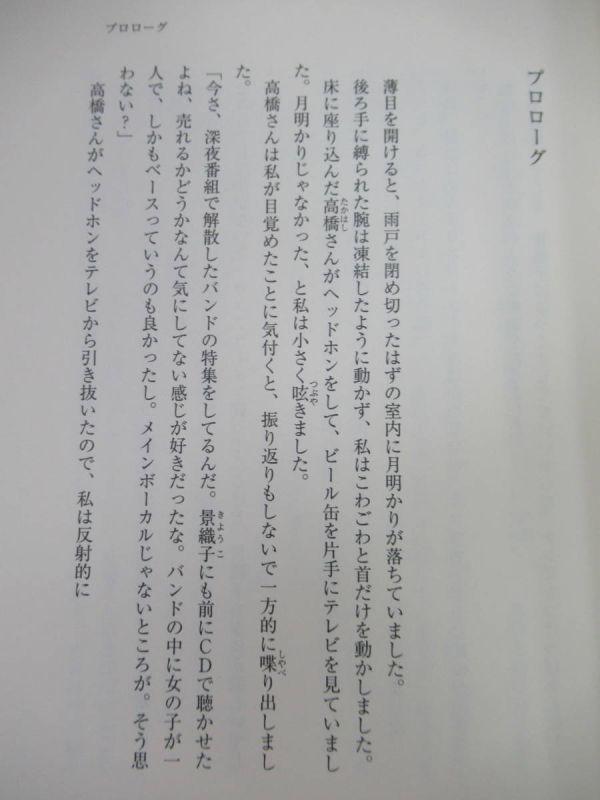 プロローグ
プロローグ
薄目を開けると、雨戸を閉め切ったはずの室内に月明かりが落ちていました。
後ろ手に縛られた腕は凍結したように動かず、私はこわごわと首だけを動かしました。
床に座り込んだ高橋さんがヘッドホンをして、ビール缶を片手にテレビを見ていまし
た。月明かりじゃなかった、と私は小さく呟きました。
高橋さんは私が目覚めたことに気付くと、振り返りもしないで一方的に喋り出しまし
た。
「今さ、深夜番組で解散したバンドの特集をしてるんだ。景織子にも前にCDで聴かせた
よね、売れるかどうかなんて気にしてない感じが好きだったな。バンドの中に女の子が一
人で、しかもベースっていうのも良かったし。メインボーカルじゃないところが。そう思
わない？」
高橋さんがヘッドホンをテレビから引き抜いたので、私は反射的に